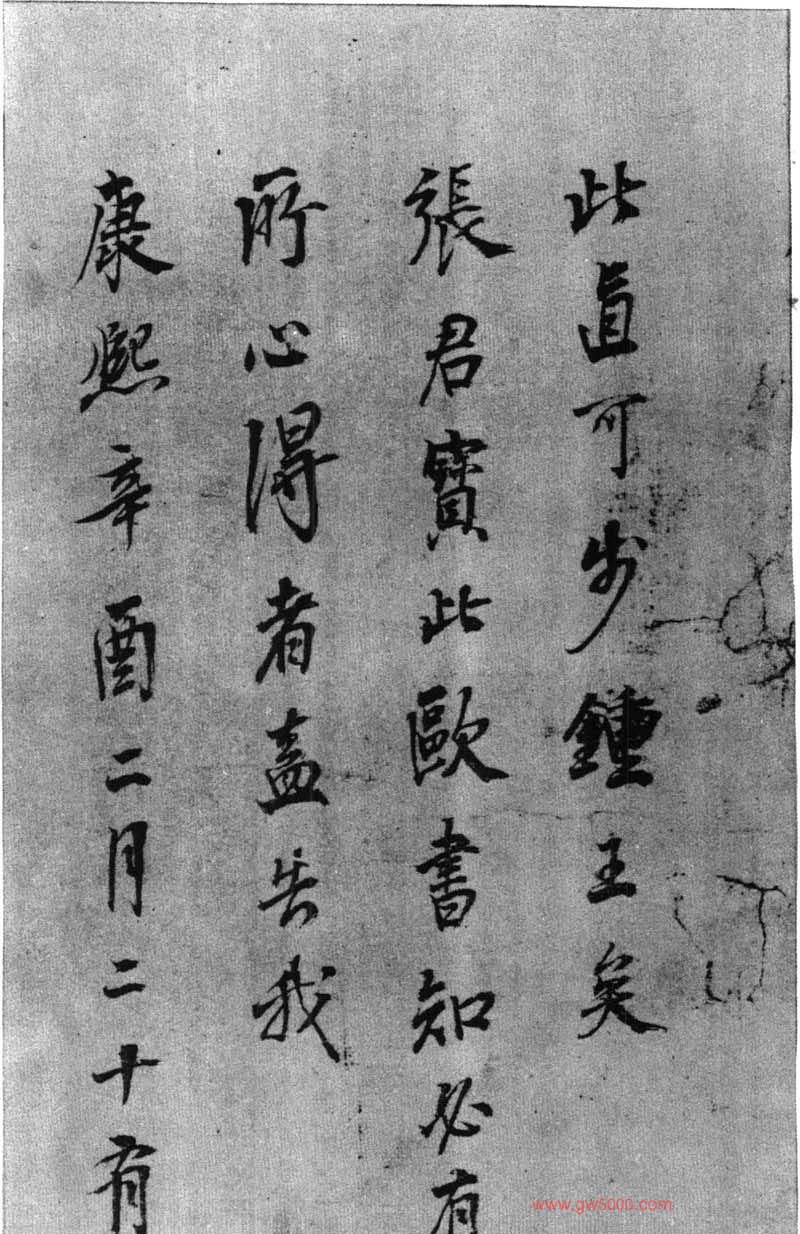 此真可步鍾王矣
張君寶此歐書知必有
所心得者盍告我
康熙辛酉二月二十有
www.gw5000.com